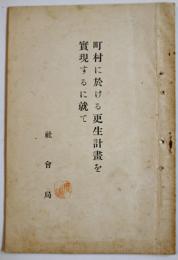 町村に於ける更生計畫を
實現するに就て
社會局